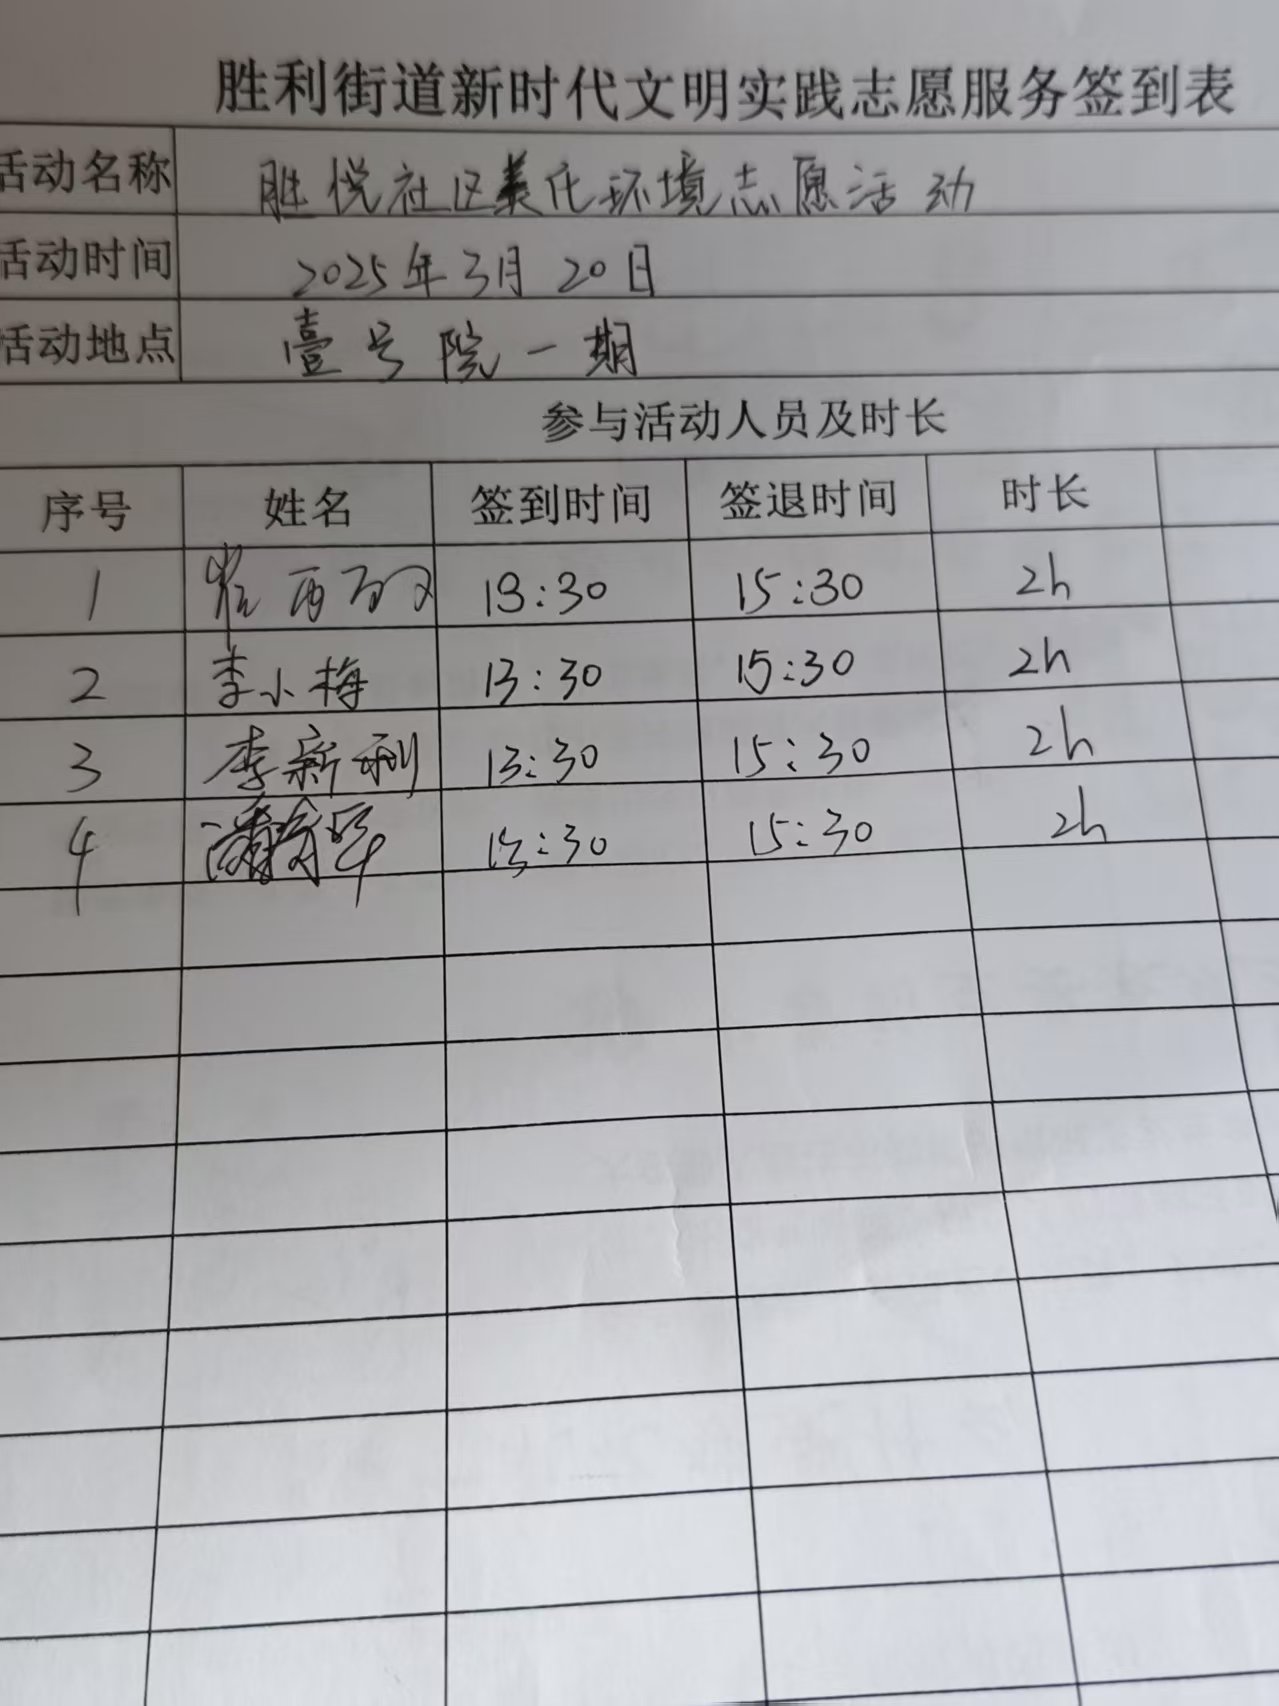 胜利街道新时代文明实践志愿服务签到表
活动名称 胜悦社区美化环境志愿活动
活动时间 2025年3月20日
活动地点 壹号院一期
参与活动人员及时长
序号 姓名 签到时间 签退时间 时长
1 13:30 15:30 2h
2 李小梅 13:30 15:30 2h
3 李新利 13:30 15:30 2h
4 13:30 15:30 2h